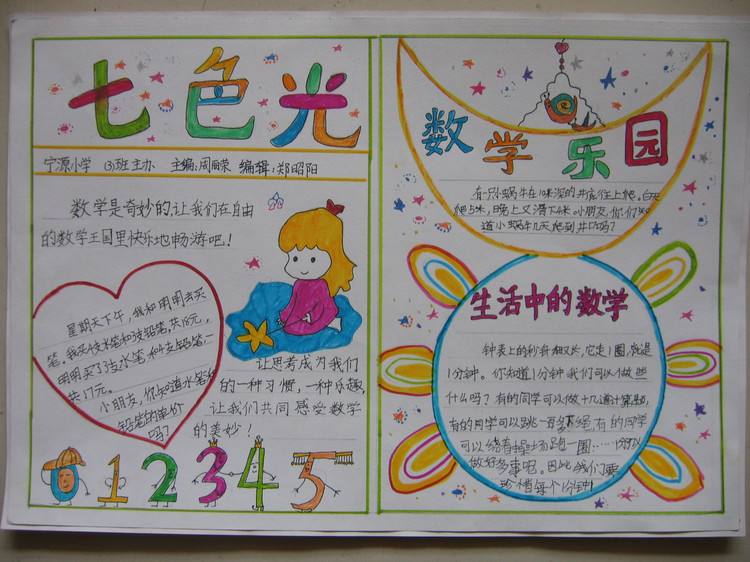 七色光
宁源小学 (3)班主办 主编:周丽荣 编辑:郑昭阳
数学是奇妙的,让我们在自由
的数学王国里快乐地畅游吧!
星期天下午,我和明明去买
笔。我买1支水笔和3支铅笔,共15元,
明明买了3支水笔和1支铅笔,
共17元。
小朋友,你知道水笔和
铅笔的单价
吗?
让思考成为我们
的一种习惯,一种乐趣,
让我们共同感受数学
的美妙!
0 1 2 3 4 5
数学乐园
有一只蜗牛在10米深的井底往上爬。白天
爬5米,晚上又滑下4米,小朋友,你们知
道小蜗牛几天爬到井口吗?
生活中的数学
钟表上的秒针细又长,它走1圈,就是
1分钟。你知道1分钟我们可以做些
什么吗?有的同学可以做十几道计算题,
有的同学可以跳一百多下绳,有的同学
可以绕着操场跑一圈……1分可以
做好多事呢。因此我们要
珍惜每个1分钟!